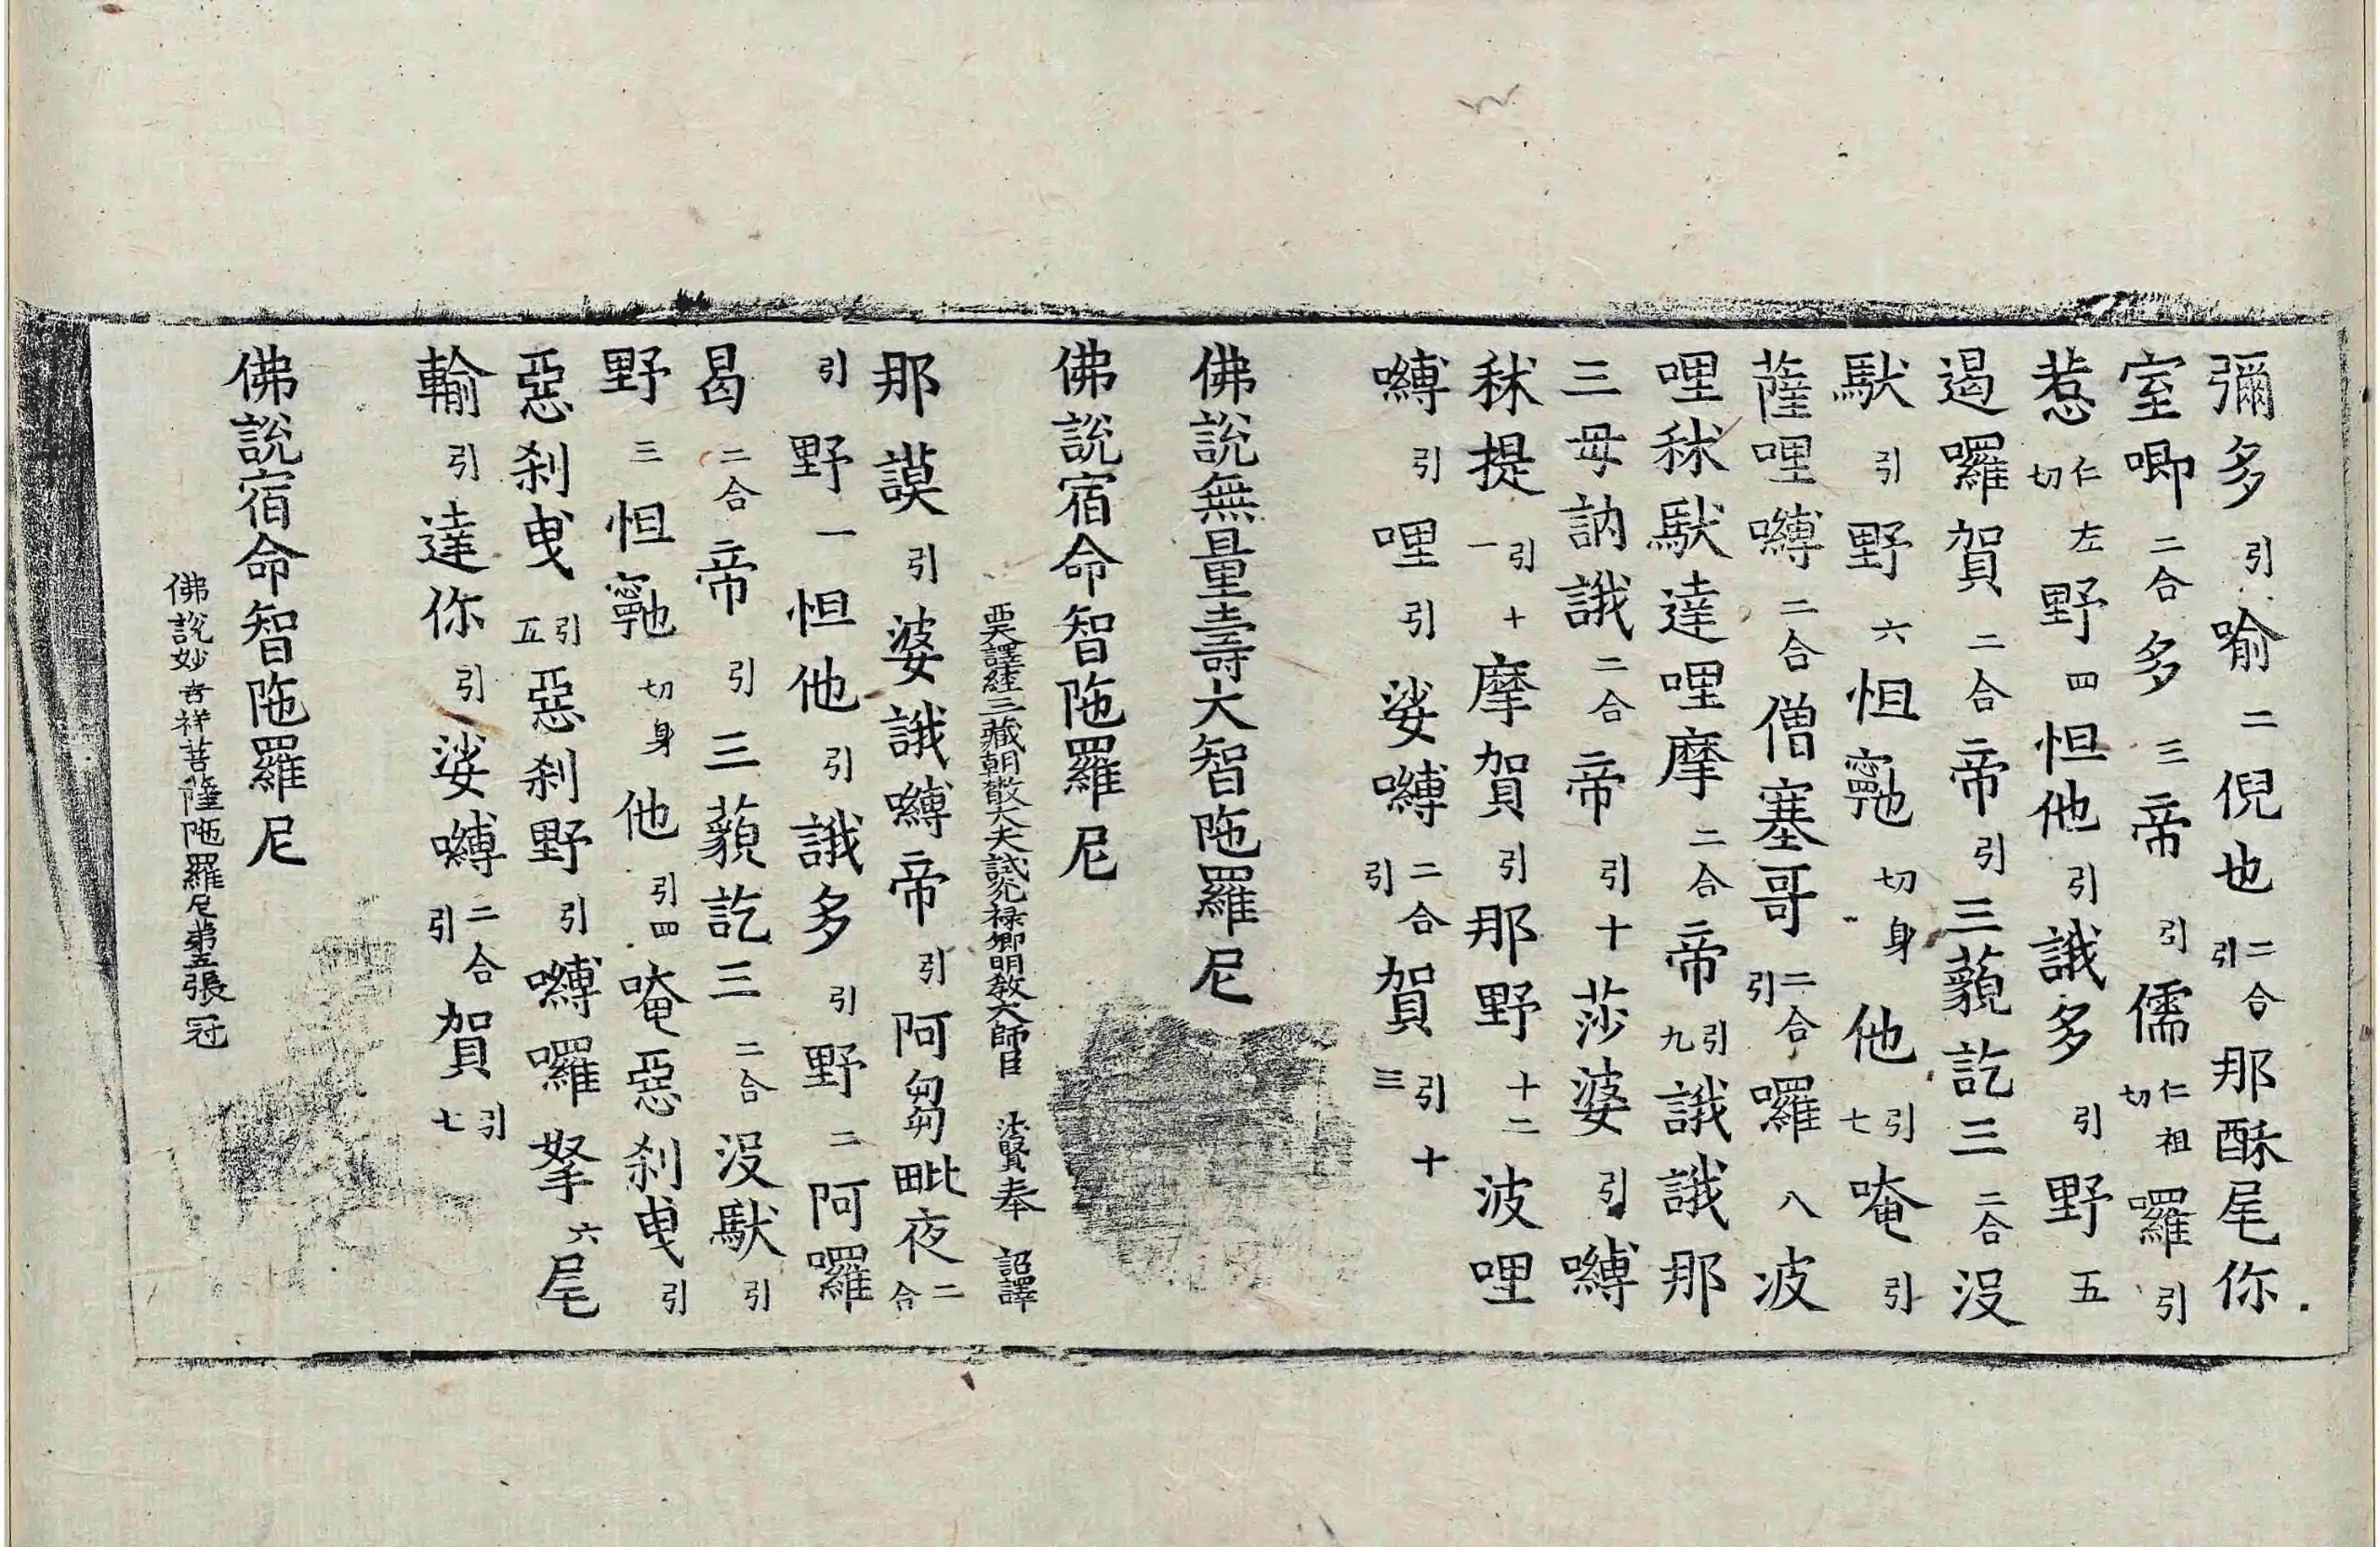 彌多引喻二倪也二合引那酥尾你
室唧二合多三帝引儒仁祖切囉引
惹仁左切野四怛他引誐多引野五
遏囉賀二合帝引三藐訖三二合没
馱引野六怛䆿切身他引七唵引
薩哩嚩二合僧塞哥二合引囉八波
哩秫馱達哩摩二合帝引九誐誐那
三毋訥誐二合帝引十莎婆引嚩
秫提引十一摩賀引那野十二波哩
嚩引哩引娑嚩二合引賀引十三
佛說無量壽大智陁羅尼
佛說宿命智陁羅尼
西天譯經三藏朝散大夫試光禄卿明教大師臣法賢奉 詔譯
那謨引婆誐嚩帝引阿芻毗夜二合
引野一怛他引誐多引野二阿囉
曷二合帝引三藐訖三二合没馱引
野三怛䆿切身他引四唵惡刹曳引
惡刹曳引五惡刹野引嚩囉拏六尾
輸引達你引娑嚩二合引賀引七
佛說宿命智陁羅尼
佛說妙吉祥菩薩陁羅尼苐五張冠